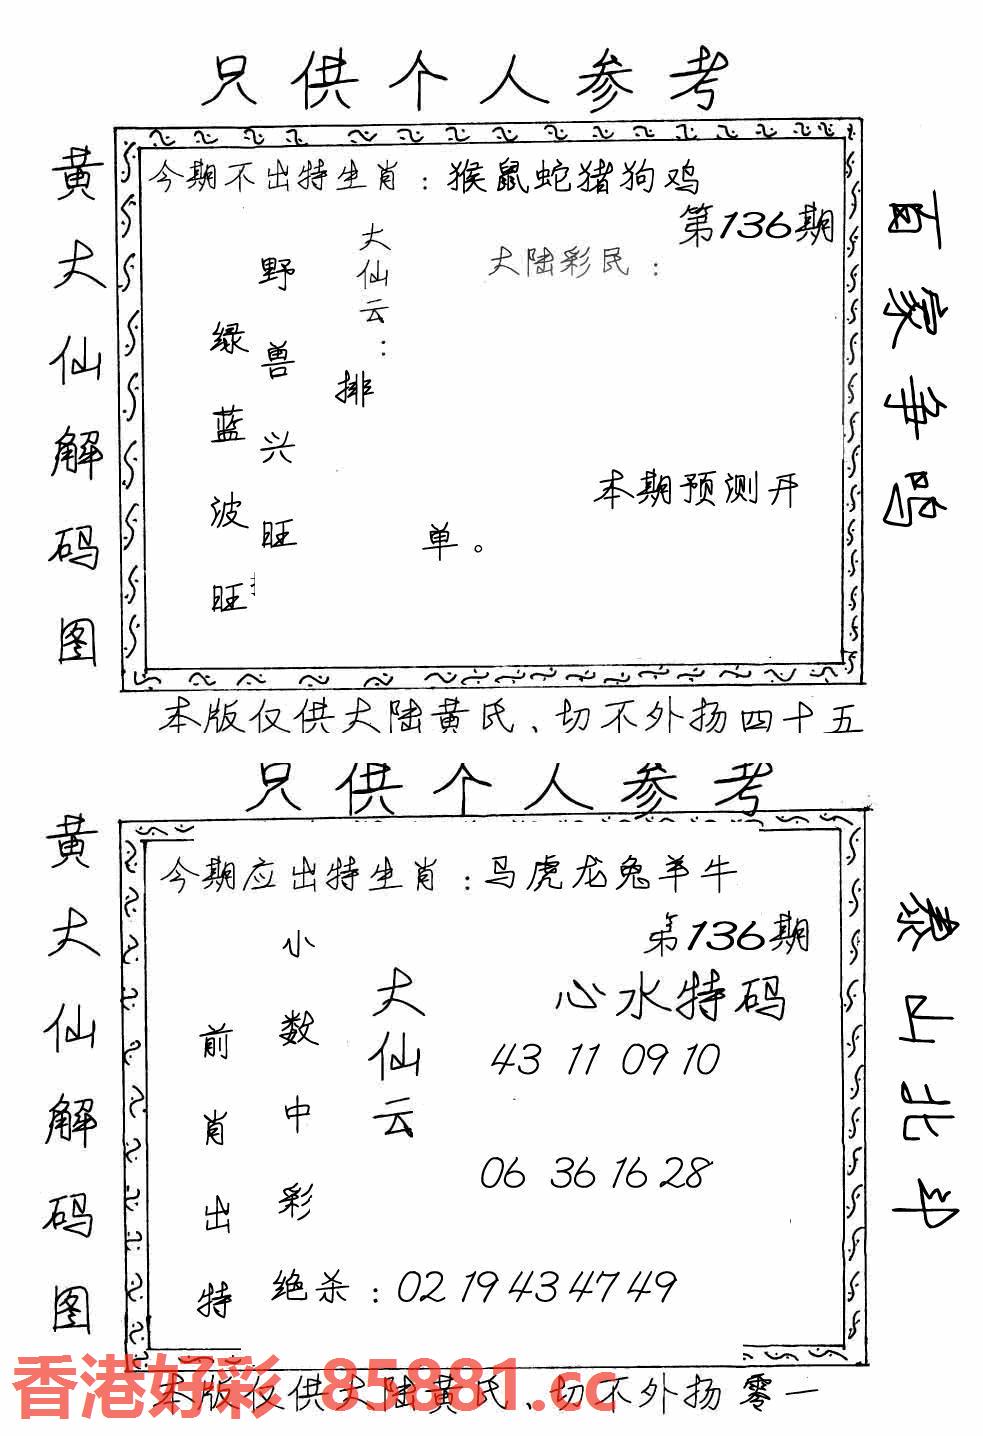 只供个人参考
黄大仙解码图
百家争鸣
今期不出特生肖：猴鼠蛇猪狗鸡
第136期
大陆彩民：
大仙云：
排
野兽兴旺
绿蓝波旺
单。
本期预测开
本版仅供大陆黄氏、切不外扬四十五
只供个人参考
黄大仙解码图
泰山北斗
今期应出特生肖：马虎龙兔羊牛
第136期
心水特码
大仙云
小数中彩
前肖出特
43 11 09 10
06 36 16 28
绝杀：02 19 43 47 49
香港好彩 85881.cc
本版仅供大陆黄氏、切不外扬零一